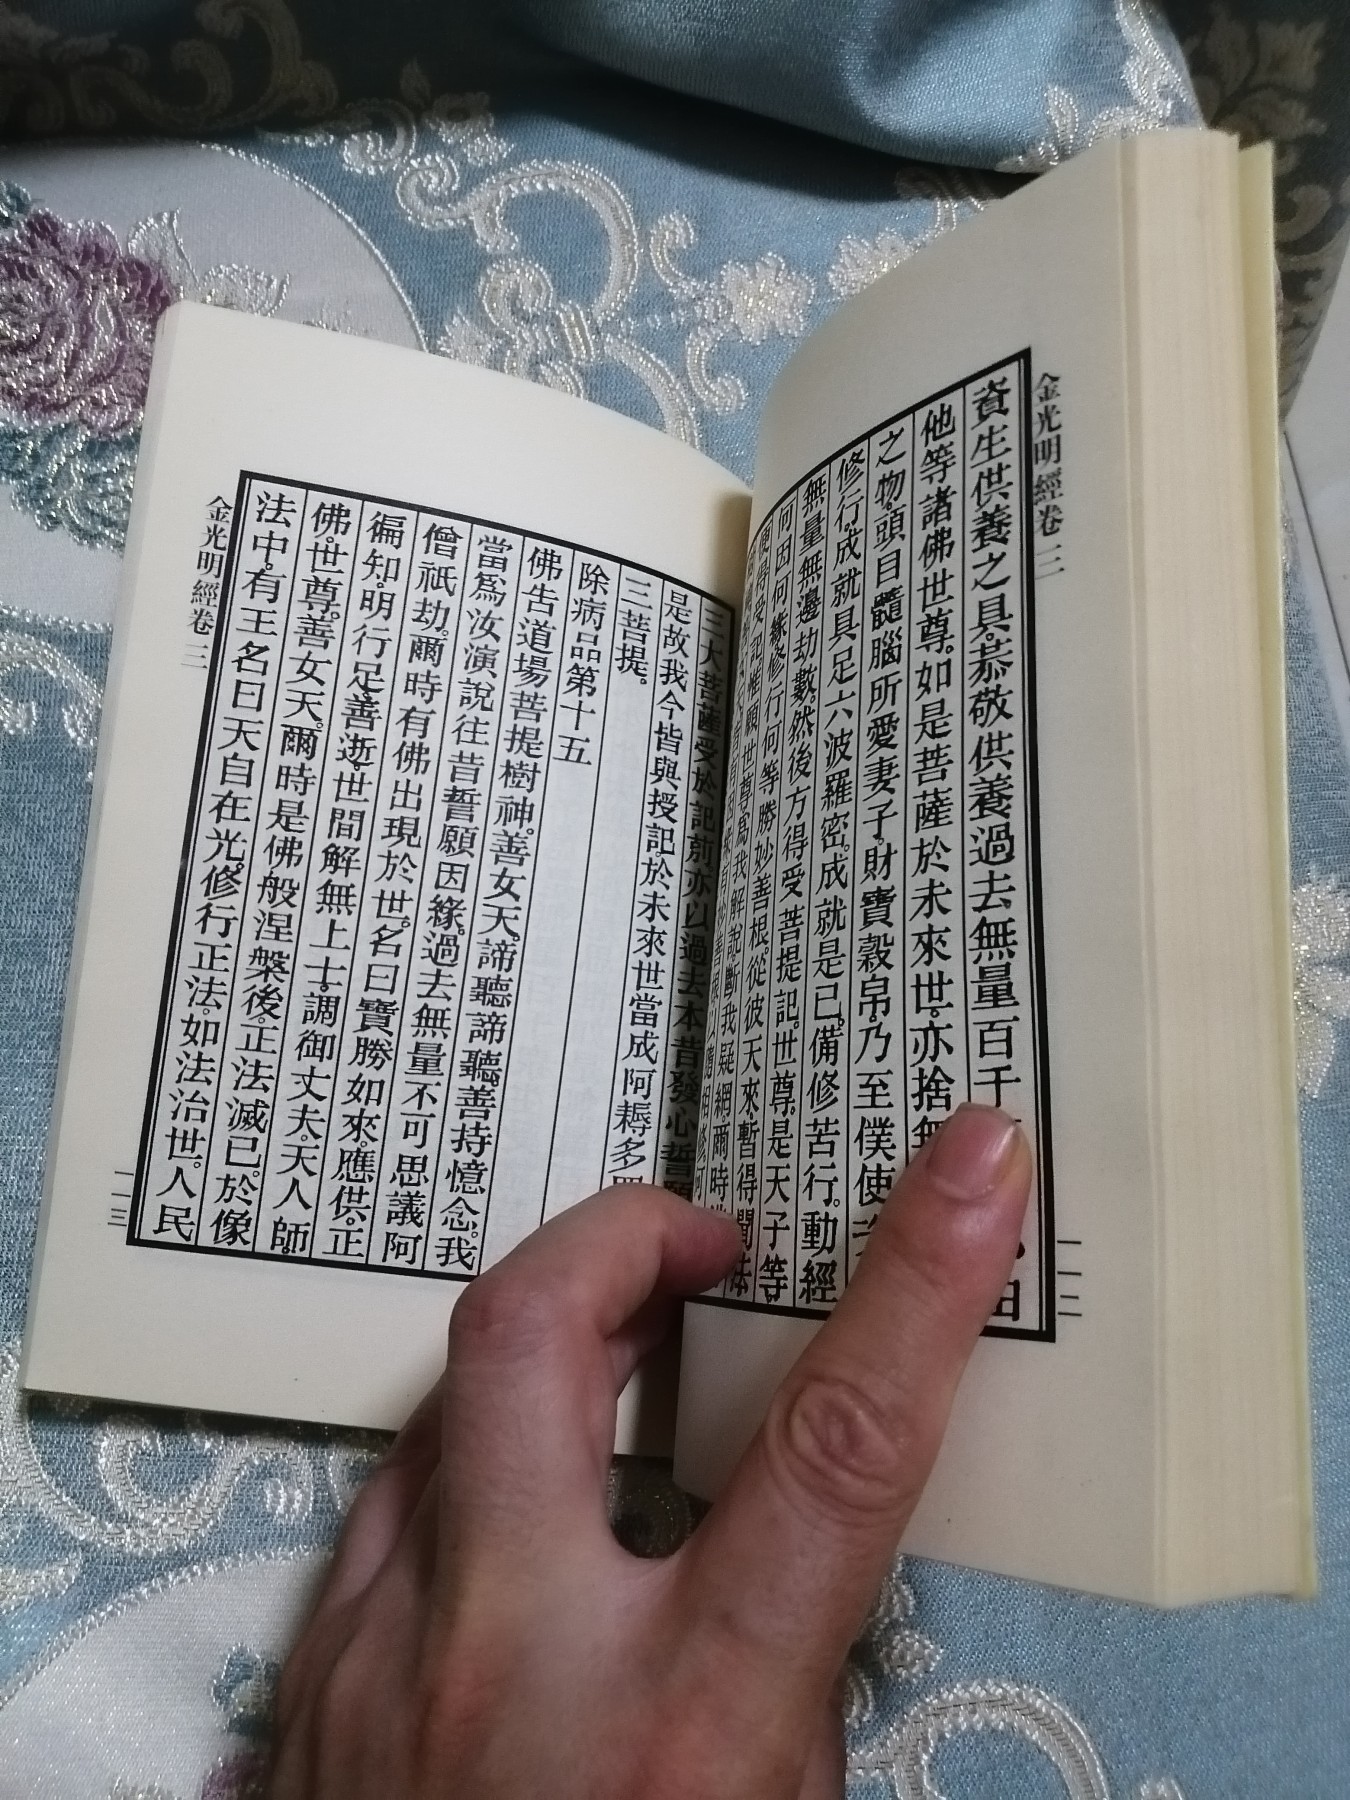 金光明經卷三
資生供養之具恭敬供養過去無量百千
他等諸佛世尊如是菩薩於未來世亦捨無
之物頭目髓腦所愛妻子財寶穀帛乃至僕使
修行成就具足六波羅密成就是已備修苦行動經
無量無邊劫數然後方得受菩提記世尊是天子等
何因何緣修行何等勝妙善根從彼天來暫得聞法
便得受記惟願世尊爲我解說斷我疑網爾時
一一二
三大菩薩受於記莂亦以過去本昔發心誓願
是故我今皆與授記於未來世當成阿耨多羅
三菩提。
除病品第十五
佛告道場菩提樹神。善女天。諦聽諦聽。善持憶念。我
當爲汝演說往昔誓願因緣。過去無量不可思議阿
僧祇劫。爾時有佛出現於世。名曰寶勝如來。應供。正
徧知。明行足。善逝。世間解無上士。調御丈夫。天人師。
佛。世尊。善女天。爾時是佛般涅槃後。正法滅已。於像
法中。有王名曰天自在光。修行正法。如法治世。人民
金光明經卷三
一一三